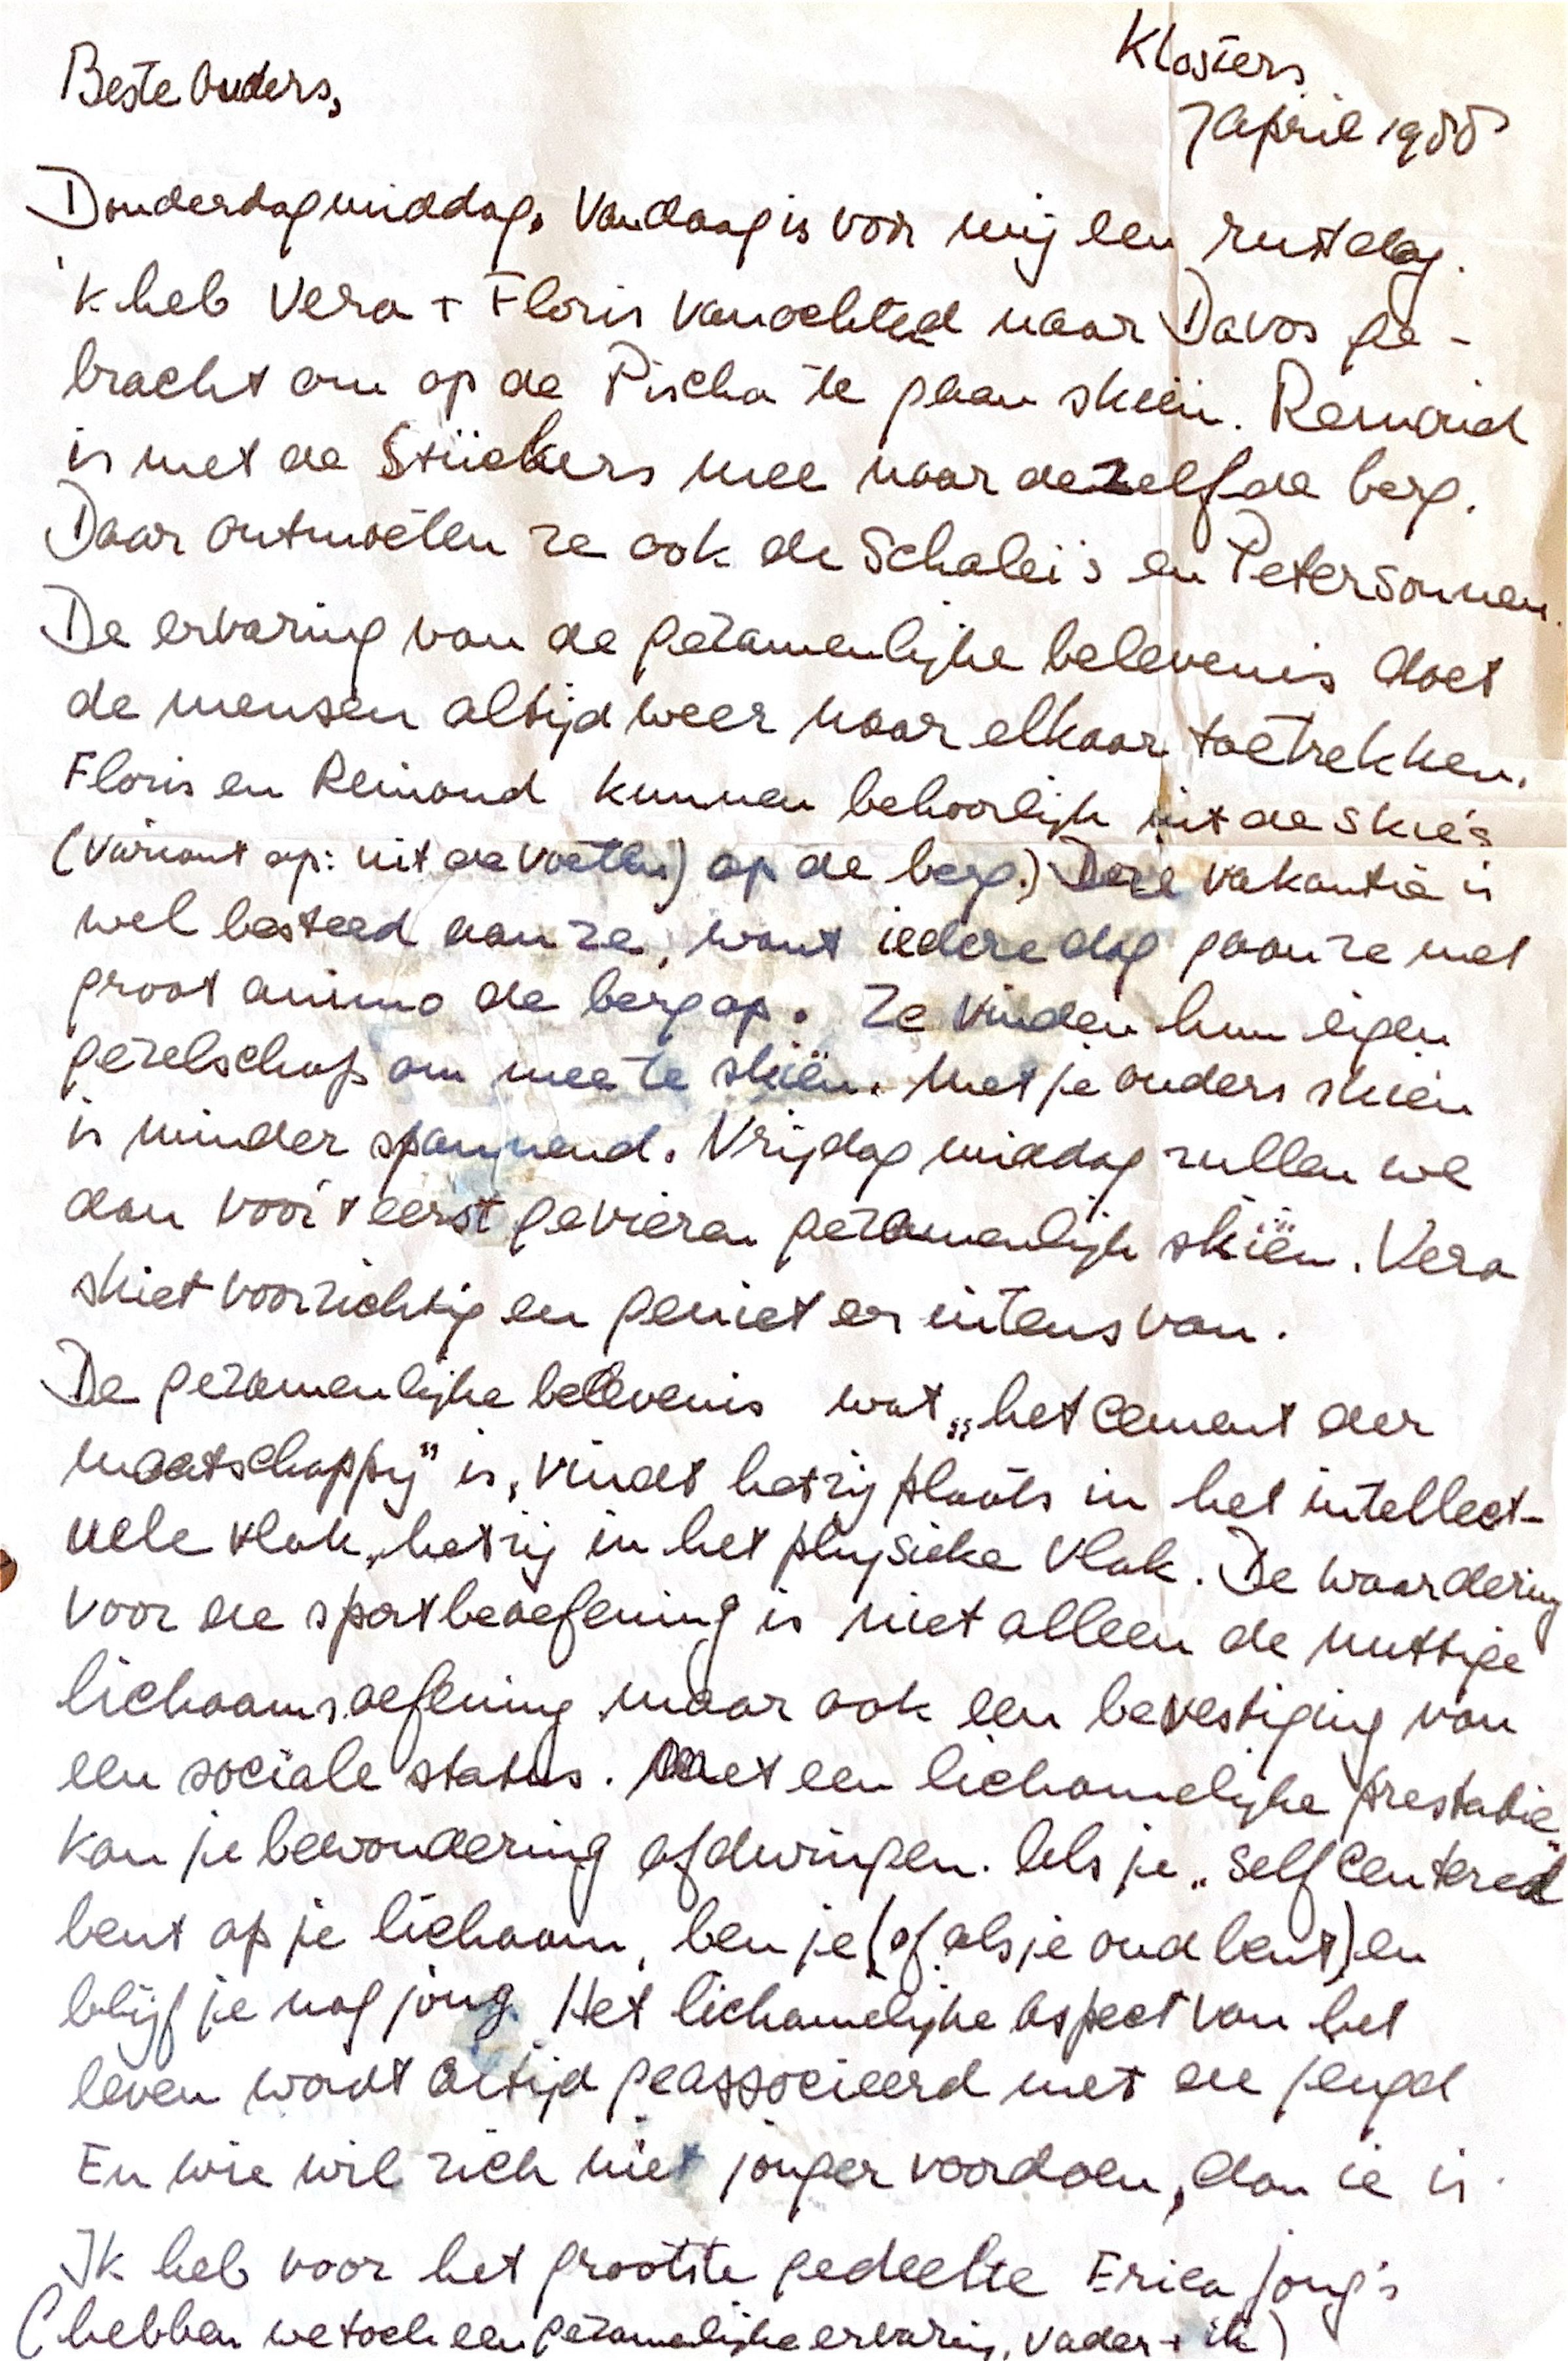 Klosters
7 April 1988
Beste Ouders,
Donderdagmiddag. Vandaag is voor mij een rustdag.
'k heb Vera + Floris vanochted naar Davos ge-
bracht om op de Pischa te gaan skiën. Remond
is met de Stückers mee naar dezelfde berg.
Daar ontmoeten ze ook de Schalei's en Petersonnen.
De ervaring van de gezamenlijke belevenis doet
de mensen altijd weer naar elkaar toetrekken.
Floris en Reinoud kunnen behoorlijk uit de skie's
(variant op: uit de voeten) op de berg.) Deze vakantie is
wel besteed aan ze, want iedere dag gaan ze met
groot animo de berg op. Ze vinden hun eigen
gezelschap om mee te skiën. Met je ouders skiën
is minder spannend. Vrijdag middag zullen we
dan voor 't eerst gevieren gezamenlijk skiën. Vera
skiet voorzichtig en geniet er intens van.
De gezamenlijke belevenis wat „het cement der
maatschappij" is, vindt hetzij plaats in het intellect-
uele vlak, hetzij in het physieke vlak. De waardering
voor de sportbeoefening is niet alleen de nuttige
lichaamsoefening maar ook een bevestiging van
een sociale status. Met een lichamelijke prestatie
kan je bewondering afdwingen. Als je „self centered"
bent op je lichaam, ben je (of als je oud bent) en
blijf je nog jong. Het lichamelijke aspect van het
leven wordt altijd geassocieerd met de jeugd
En wie wil zich niet jonger voordoen, dan ie is.
Ik heb voor het grootste gedeelte Erica Jong's
(hebben we toch een gezamenlijke ervaring, vader + ik)